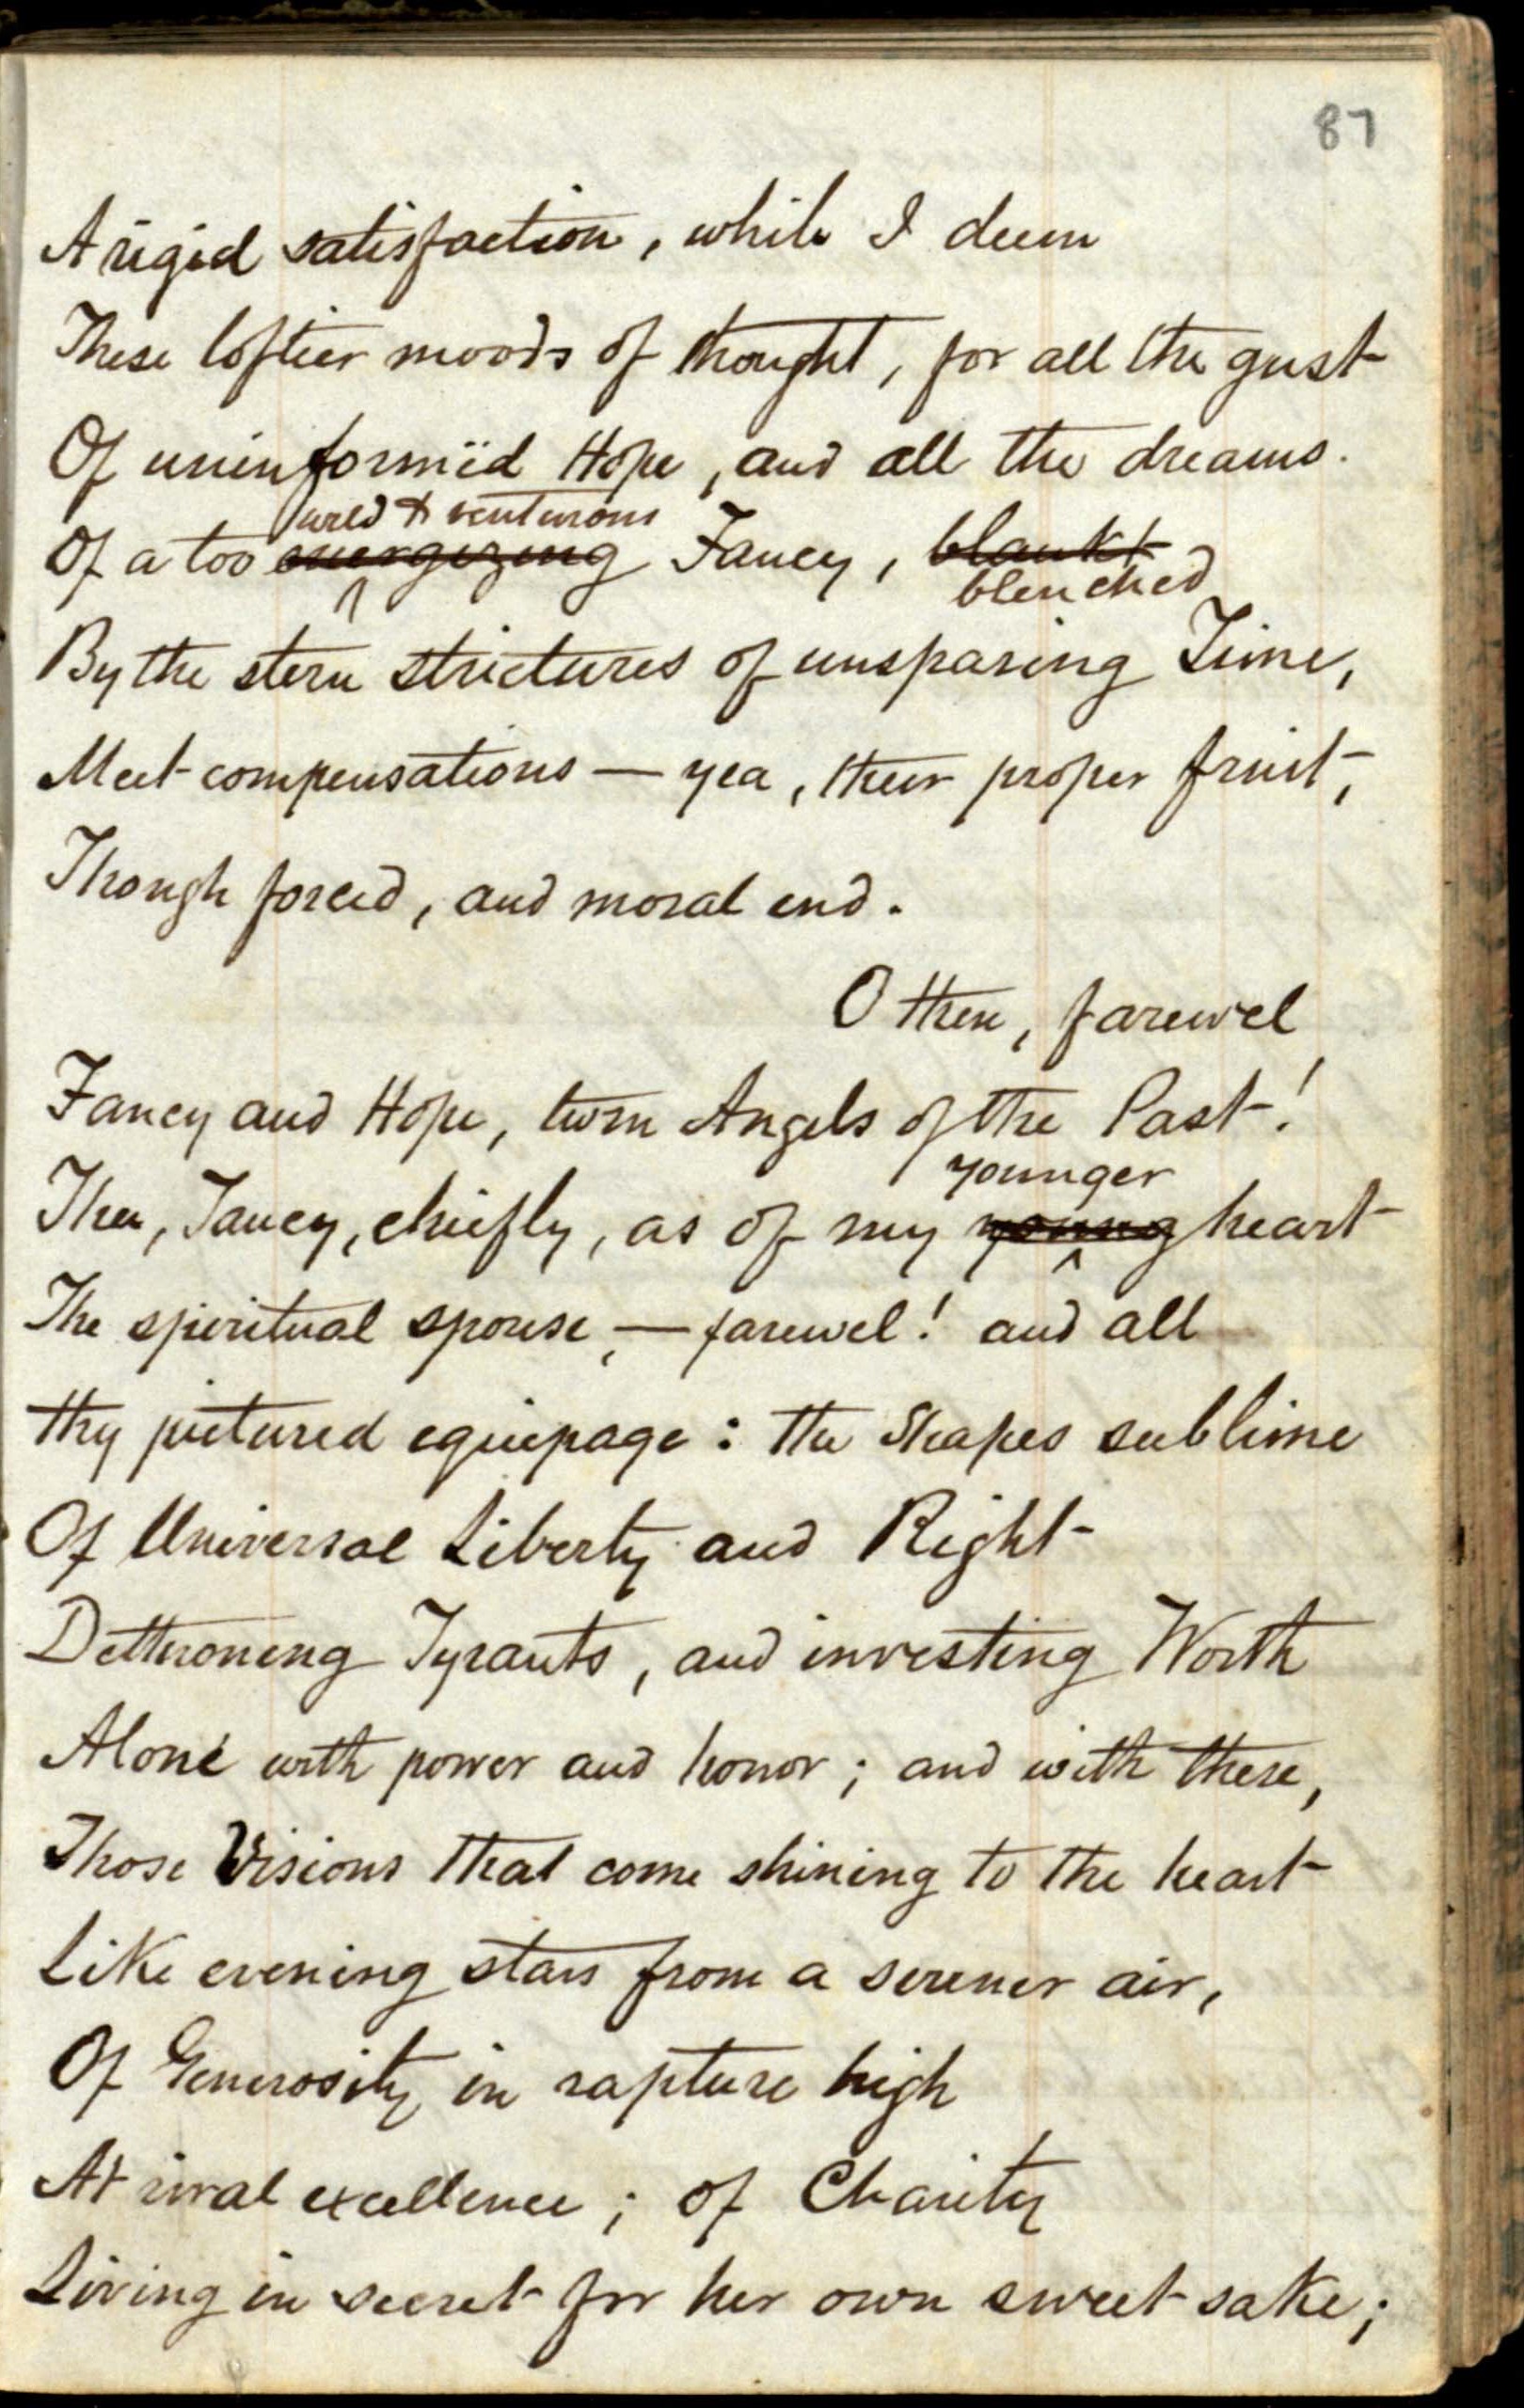 87
A rigid satisfaction, while I deem
These loftier moods of thought, for all the gust
Of uninformëd Hope, and all the dreams.
wild & venturous
Of a too energizing Fancy, blankt
blenched
By the stern strictures of unsparing Time,
Meet compensations — yea, their proper fruit,
Though forced, and moral end.
O then, farewel
Fancy and Hope, twin Angels of the Past!
younger
Thee, Fancy, chiefly, as of my young heart
The spiritual spouse, — farewel! and all
thy pictured equipage: the Shapes sublime
Of Universal Liberty and Right
Dethroning Tyrants, and investing Worth
Alone with power and honor; and with these,
Those Visions that come shining to the heart
Like evening stars from a serener air,
Of Generosity in rapture high
At rival excellence; of Charity
Living in secret for her own sweet sake;